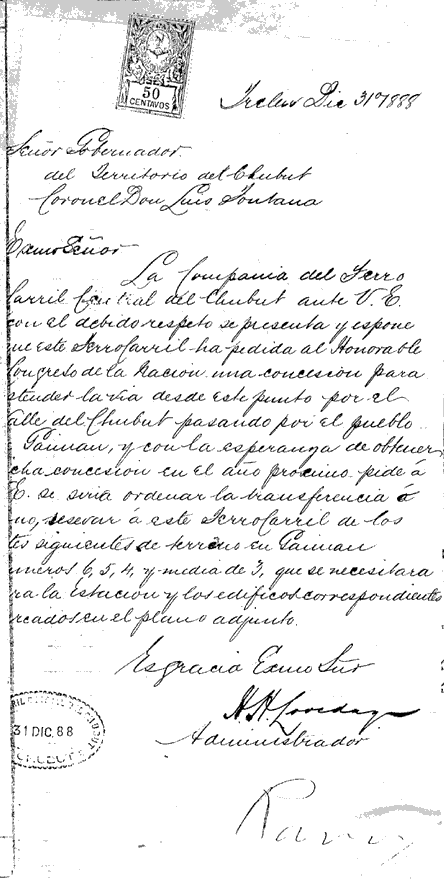 50
CENTAVOS
Trelew Dic 31º 1888
Señor Gobernador
del Territorio del Chubut
Coronel Don Luis Fontana
Exmo Señor
La Compania del Ferro
Carril Central del Chubut ante V. E.
con el debido respeto se presenta y espone
ue este FerroCarril ha pedida al Honorable
Congreso de la Nación una concesión para
stender la via desde este punto por el
alle del Chubut pasando por el pueblo
Gaiman, y con la esperanza de obtener
cha concesion en el año procimo pide á
E. se siria ordenar la transferencia ó
no, resevar á este FerroCarril de los
tes siguientes de terreno en Gaiman
umeros 6, 5, 4, y media de 3, que se necesitara
ra la Estacion y los edificos correspondientes
rcados en el plano adjunto.
Es gracia Exmo Sñr
Administrador
31 DIC. 88